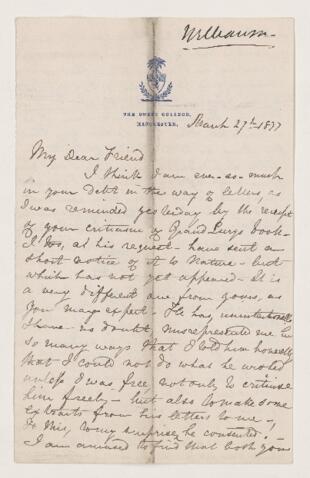 Williamson
THE OWENS COLLEGE,
MANCHESTER,
March 27th 1877
My Dear Friend
I think I am ever-so-much
in your debt in the way of letters, as
I was reminded yesterday by the receipt
of your criticism of Grand'Eury's book -
I too, at his request - have sent a
short notice of it to Nature - but
which has not yet appeared - It is
a very different one from yours, as
you may expect - He has, unintentionally
I have no doubt, misrepresented me in
so many ways that I told him honestly
that I could not do what he wanted
unless I was free, not only to criticise
him freely - but also to make some
extracts from his letters to me -,
To this, to my surprise, he consented. -
I am amused to find that both yours